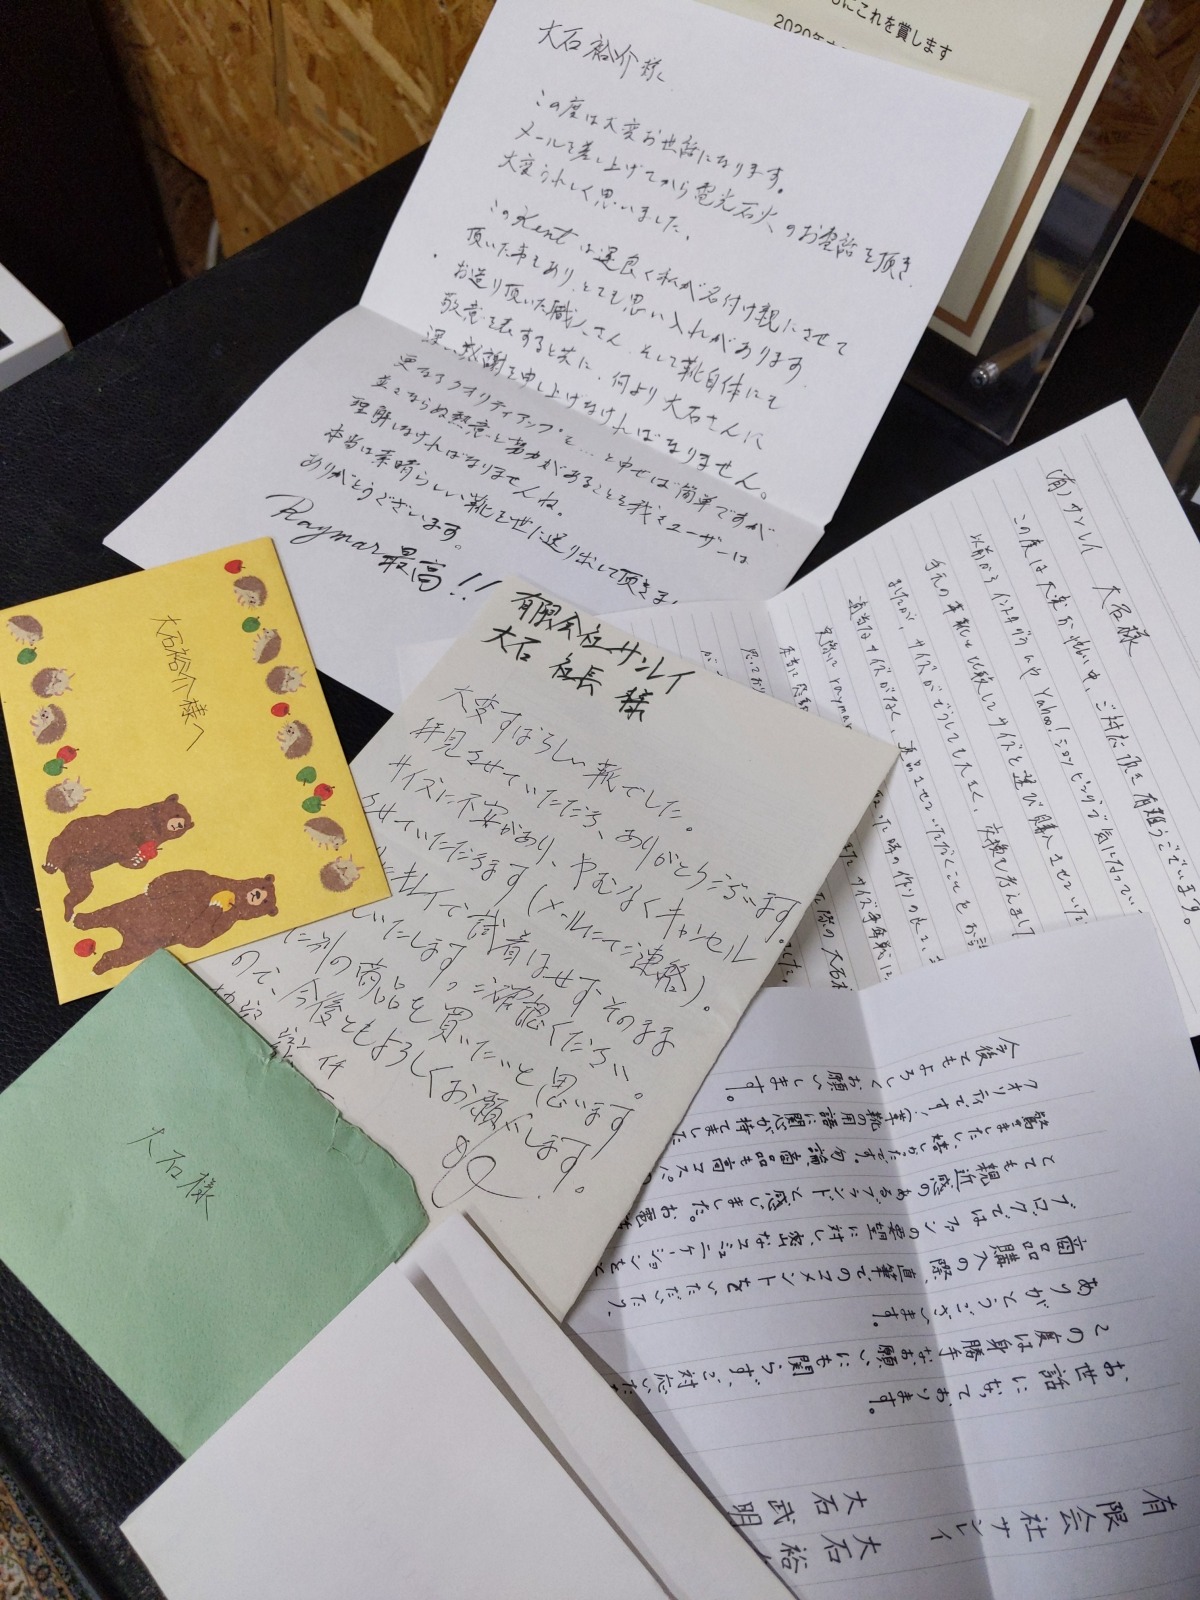 にこれを賞します
2020年
大石裕介様
この度は大変お世話になります。
メールを差し上げてから電光石火のお電話を頂き
大変うれしく思いました。
このKentは運良く私が名付け親にさせて
頂いた事もあり、とても思い入れがあります
お造り頂いた職人さん、そして靴自体にも
敬意を表すると共に、何より大石さんに
深い感謝を申し上げなければなりません。
更なるクオリティアップを…と申せば簡単ですが
並々ならぬ熱意と努力があることを我々ユーザーは
理解しなければなりませんね。
本当は素晴らしい靴を世に送り出して頂きま
ありがとうございます。
Raymar最高!!
大石裕介様へ
大石様
有限会社サンレイ
大石社長様
大変すばらしい靴でした。
拝見させていただき、ありがとうございます。
サイズに不安があり、やむなくキャンセル
させていただきます(メールにてご連絡)。
キレイで試着はせずそのまま
いたします。ご確認ください。
別の商品を買いたいと思います
ので、今後ともよろしくお願いします。
(有)サンレイ 大石様
この度は大変お忙しい中、ご対応頂き有難うございます。
以前からインスタグラムやYahoo!ショッピングで気になってい
手元の革靴と比較してサイズを選び購入させていた
ましたが、サイズがどうしても大きく、交換も考えまし
適当なサイズがなく、返品させていただくことと
実際にRaymar
有限会社サンレイ
大石武明
大石裕
お世話になっております。
この度は身勝手なお願いにも関らず、ご対応いた
ありがとうございます。
商品購入の際、直筆でのコメントをいただいたり、
ブログではファンの要望に対し、密なコミュニケーションをと
とても親近感のあるブランドと感じました。お電話
驚きましたし、嬉しかったです。勿論、商品も高コスパの
クオリティですし、革靴の用語に関心が持てました
今後ともよろしくお願いします。